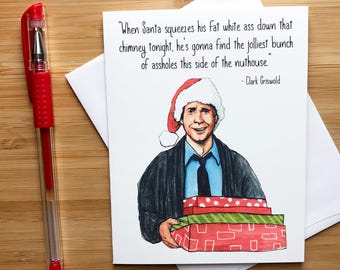 "When Santa squeezes his fat white ass down that
chimney tonight, he's gonna find the jolliest bunch
of assholes this side of the nuthouse."
- Clark Griswold